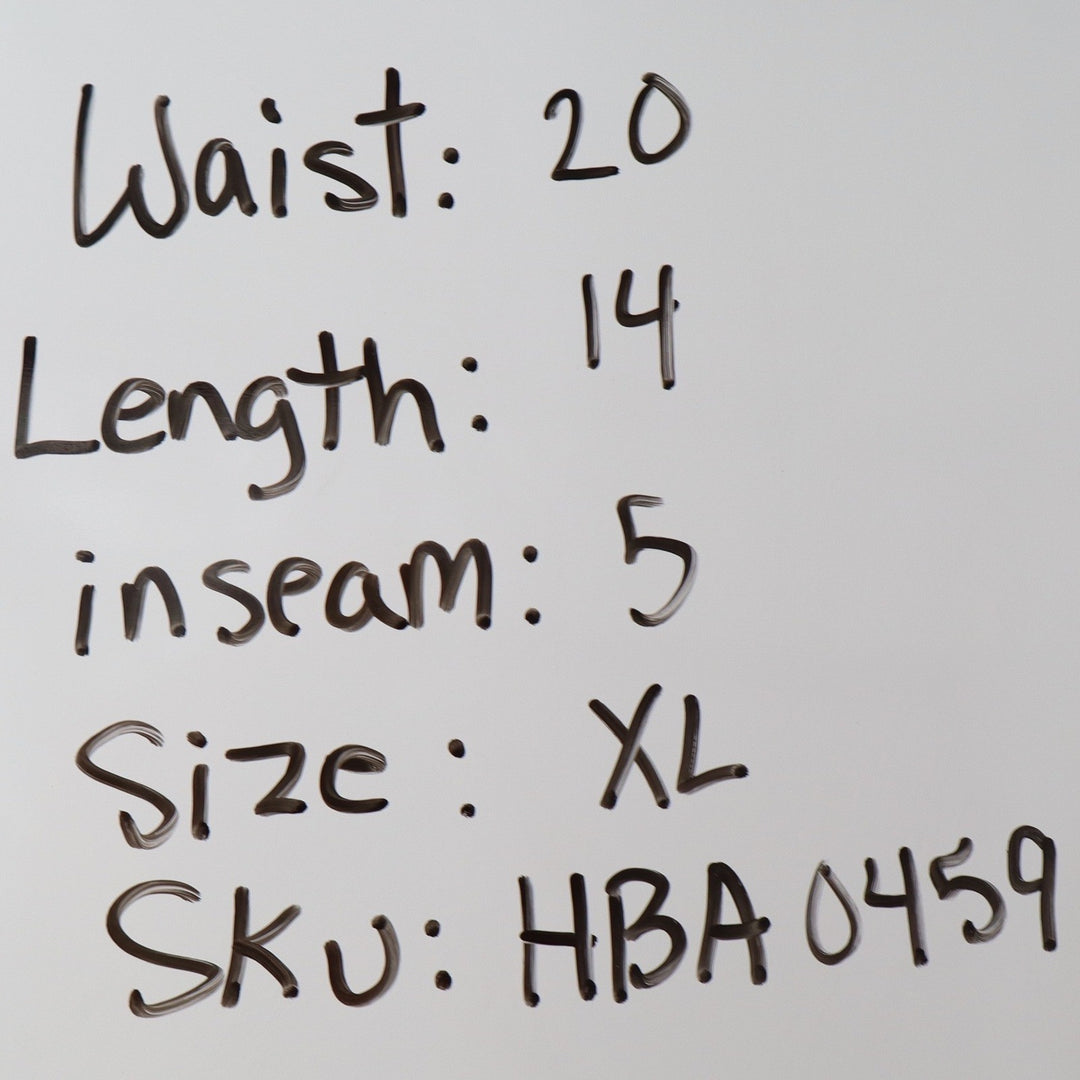 Waist: 20
Length: 14
inseam: 5
Size: XL
SKU: HBA0459